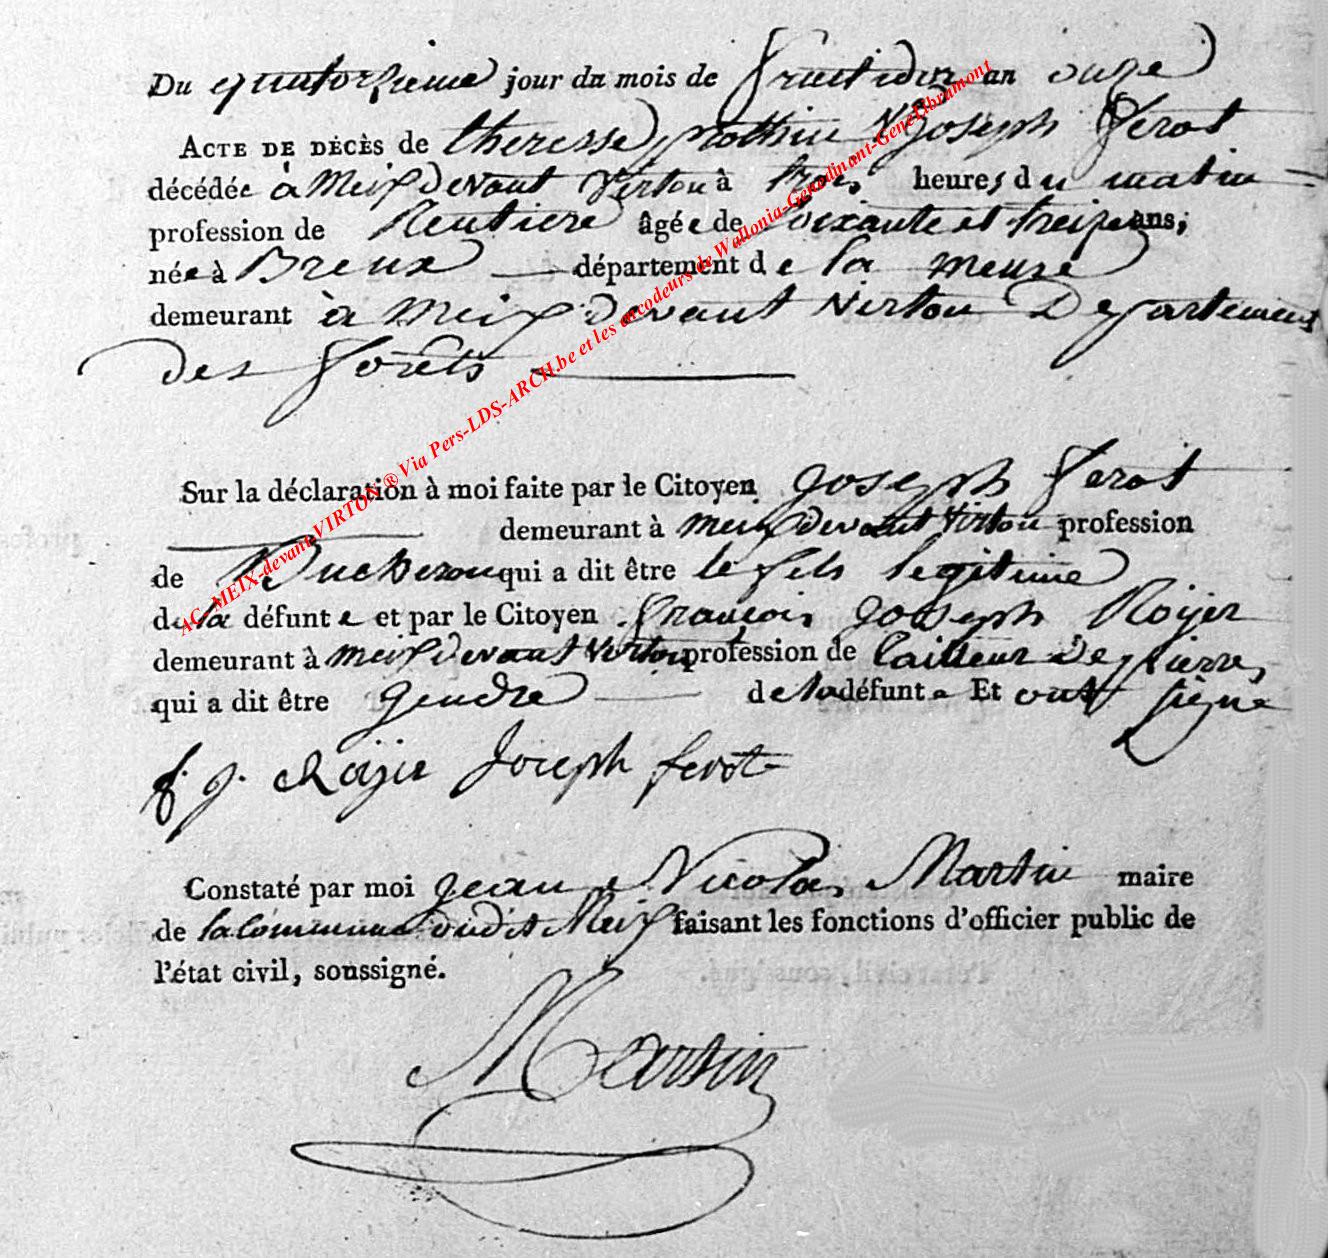 Du quatorzieme jour du mois de fructidor an onze
ACTE DE DÉCÈS de theresse Joseph ferot
décédée à Meix devant Virton à trois heures du matin
profession de Rentiere âgée de soixante et treize ans,
née à Breux département de la meuse
demeurant à Meix devant Virton Departement
des forêts
Sur la déclaration à moi faite par le Citoyen Joseph ferot
demeurant à meix devant Virton profession
de qui a dit être le fils legitime
de la défunte et par le Citoyen francois Joseph Roijer
demeurant à meix devant Virton profession de tailleur de pierres
qui a dit être gendre de la défunte Et ont signé
f. j. Roijer Joseph ferot
Constaté par moi jean Nicolas Martin maire
de la Commune dudit Meix faisant les fonctions d'officier public de
l'état civil, soussigné.
Martin
AC. MEIX-devant-VIRTON ® Via Pers-LDS-ARCH.be et les encodeurs de Wallonia-Genedinant-GeneLibramont